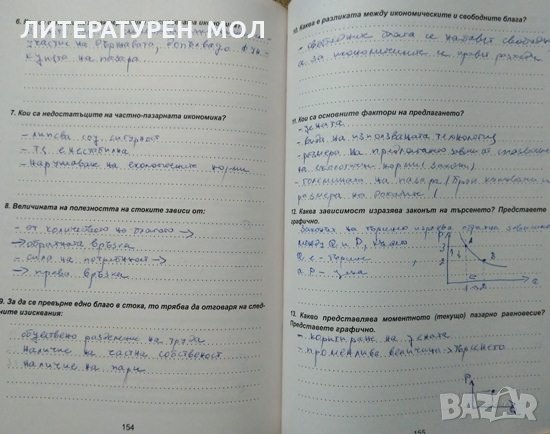 ЛИТЕРАТУРЕН МОЛ
участие на държавата, допълваща
на пазара
7. Кои са недостатъците на частно-пазарната икономика?
- липсва соц. сигурност
- Тя е нестабилна
- нарушаване на екологичните норми
8. Величината на полезността на стоките зависи от:
- от количеството на благото →
→ обратната връзка
- сила на потребност →
→ права връзка
9. За да се превърне едно благо в стока, то трябва да отговаря на след-
ните изисквания:
обществено разделение на труда
наличие на частна собственост
наличие на пари
154
10. Каква е разликата между икономическите и свободните блага?
- свободните блага се намират свободно
а за икономическите се правят разходи
11. Кои са основните фактори на предлагането?
- цената
- вида на използваната технология
- размера на предлагането зависи от спазване
на екологични норми (закони)
- големината на пазара (брой
размера на
12. Каква зависимост изразява законът на търсенето? Представете
графично.
Законът на търсене изразява обратна зависимост
между Q и P, където
Q е - търсене
а P - цена
P
A
B
Q
13. Какво представлява моментното (текущо) пазарно равновесие?
Представете графично.
- коригиране на цената
- променлива величина - търсенето
P
155
BAZAR